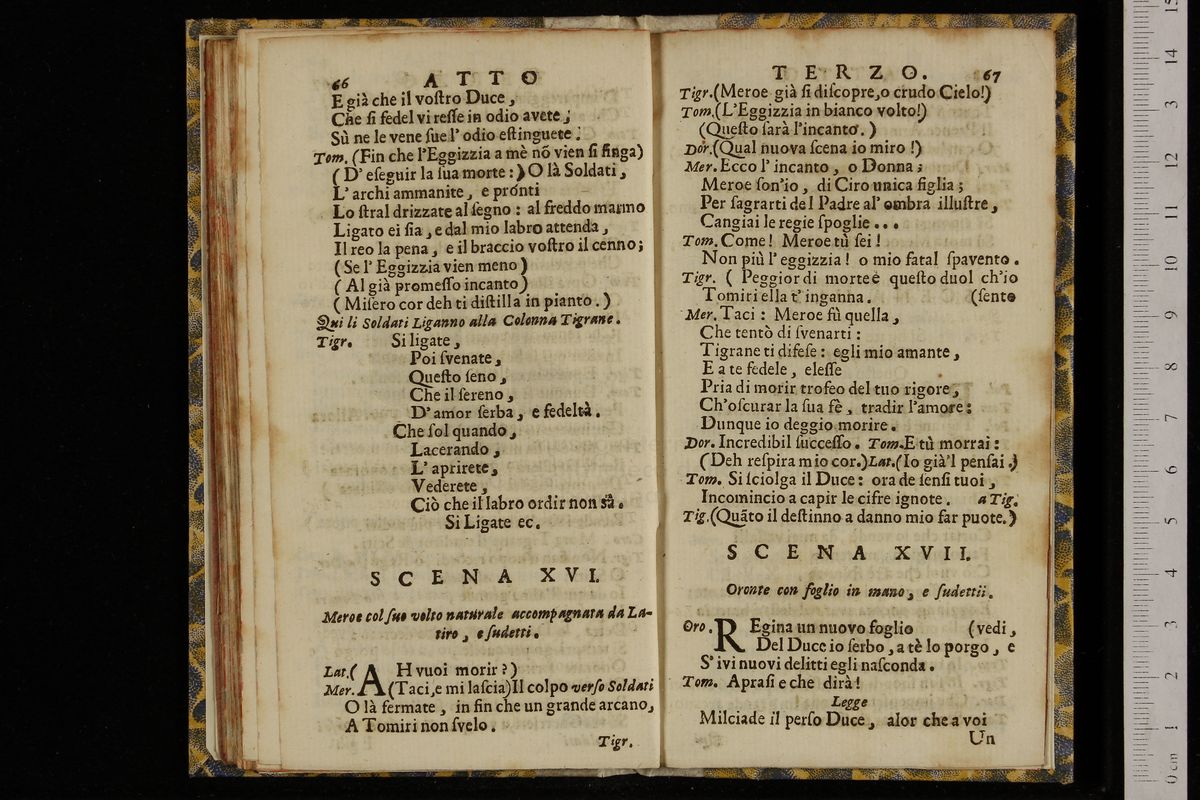 66 ATTO
E già che il voſtro Duce,
Che ſi fedel vi reſſe in odio avete;
Sù ne le vene ſue l' odio eſtinguete.
Tom. (Fin che l'Eggizzia a mè nõ vien ſi finga)
(D' eſeguir la ſua morte:) O là Soldati,
L' archi ammanite, e prónti
Lo ſtral drizzate al ſegno: al freddo marmo
Ligato ei ſia, e dal mio labro attenda,
Il reo la pena, e il braccio voſtro il cenno;
(Se l' Eggizzia vien meno)
(Al già promeſſo incanto)
(Miſero cor deh ti diſtilla in pianto.)
Qui li Soldati Liganno alla Colonna Tigrane.
Tigr. Si ligate,
Poi ſvenate,
Queſto ſeno,
Che il ſereno,
D' amor ſerba, e fedeltà.
Che ſol quando,
Lacerando,
L' aprirete,
Vederete,
Ciò che il labro ordir non sà.
Si Ligate ec.
SCENA XVI.
Meroe col ſuo volto naturale accompagnata da La-
tiro, e ſudetti.
Lat. (AH vuoi morir?)
Mer. (Taci, e mi laſcia) Il colpo verſo Soldati
O là fermate, in fin che un grande arcano,
A Tomiri non ſvelo.
Tigr.
TERZO. 67
Tigr. (Meroe già ſi diſcopre, o crudo Cielo!)
Tom. (L'Eggizzia in bianco volto!)
(Queſto ſarà l'incanto.)
Dor. (Qual nuova ſcena io miro!)
Mer. Ecco l' incanto, o Donna;
Meroe ſon'io, di Ciro unica figlia;
Per ſagrarti del Padre al' ombra illuſtre,
Cangiai le regie ſpoglie...
Tom. Come! Meroe tù ſei!
Non più l' eggizzia! o mio fatal ſpavento.
Tigr. (Peggior di morte è queſto duol ch'io
Tomiri ella t' inganna. (ſento
Mer. Taci: Meroe fù quella,
Che tentò di ſvenarti:
Tigrane ti difeſe: egli mio amante,
E a te fedele, eleſſe
Pria di morir trofeo del tuo rigore,
Ch'oſcurar la ſua fè, tradir l'amore:
Dunque io deggio morire.
Dor. Incredibil ſucceſſo. Tom. E tù morrai:
(Deh reſpira mio cor.) Lat. (Io già'l penſai.)
Tom. Si ſciolga il Duce: ora de ſenſi tuoi,
Incomincio a capir le cifre ignote. a Tig.
Tig. (Quãto il deſtinno a danno mio far puote.)
SCENA XVII.
Oronte con foglio in mano, e ſudettii.
Oro. REgina un nuovo foglio (vedi,
Del Duce io ſerbo, a tè lo porgo, e
S' ivi nuovi delitti egli naſconda.
Tom. Apraſi e che dirà!
Legge
Milciade il perſo Duce, alor che a voi
Un
0 cm 1 2 3 4 5 6 7 8 9 10 11 12 13 14 15